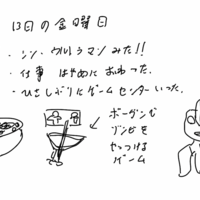 13日の金曜日
・シン・ウルトラマンみた!!
・仕事 はやめに おわった.
・ひさしぶりにゲームセンターいった.
ボーガンで
ゾンビを
やっつける
ゲーム